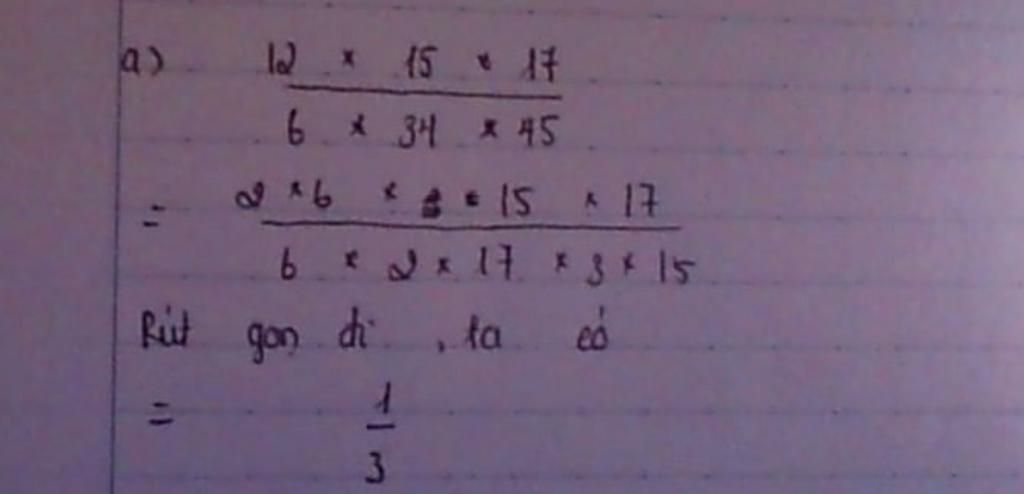 a) 12 × 15 × 17
6 × 34 × 45
= 2 × 6 × × 15 × 17
6 × 2 × 17 × 3 × 15
Rút gọn đi, ta có
= 1
3